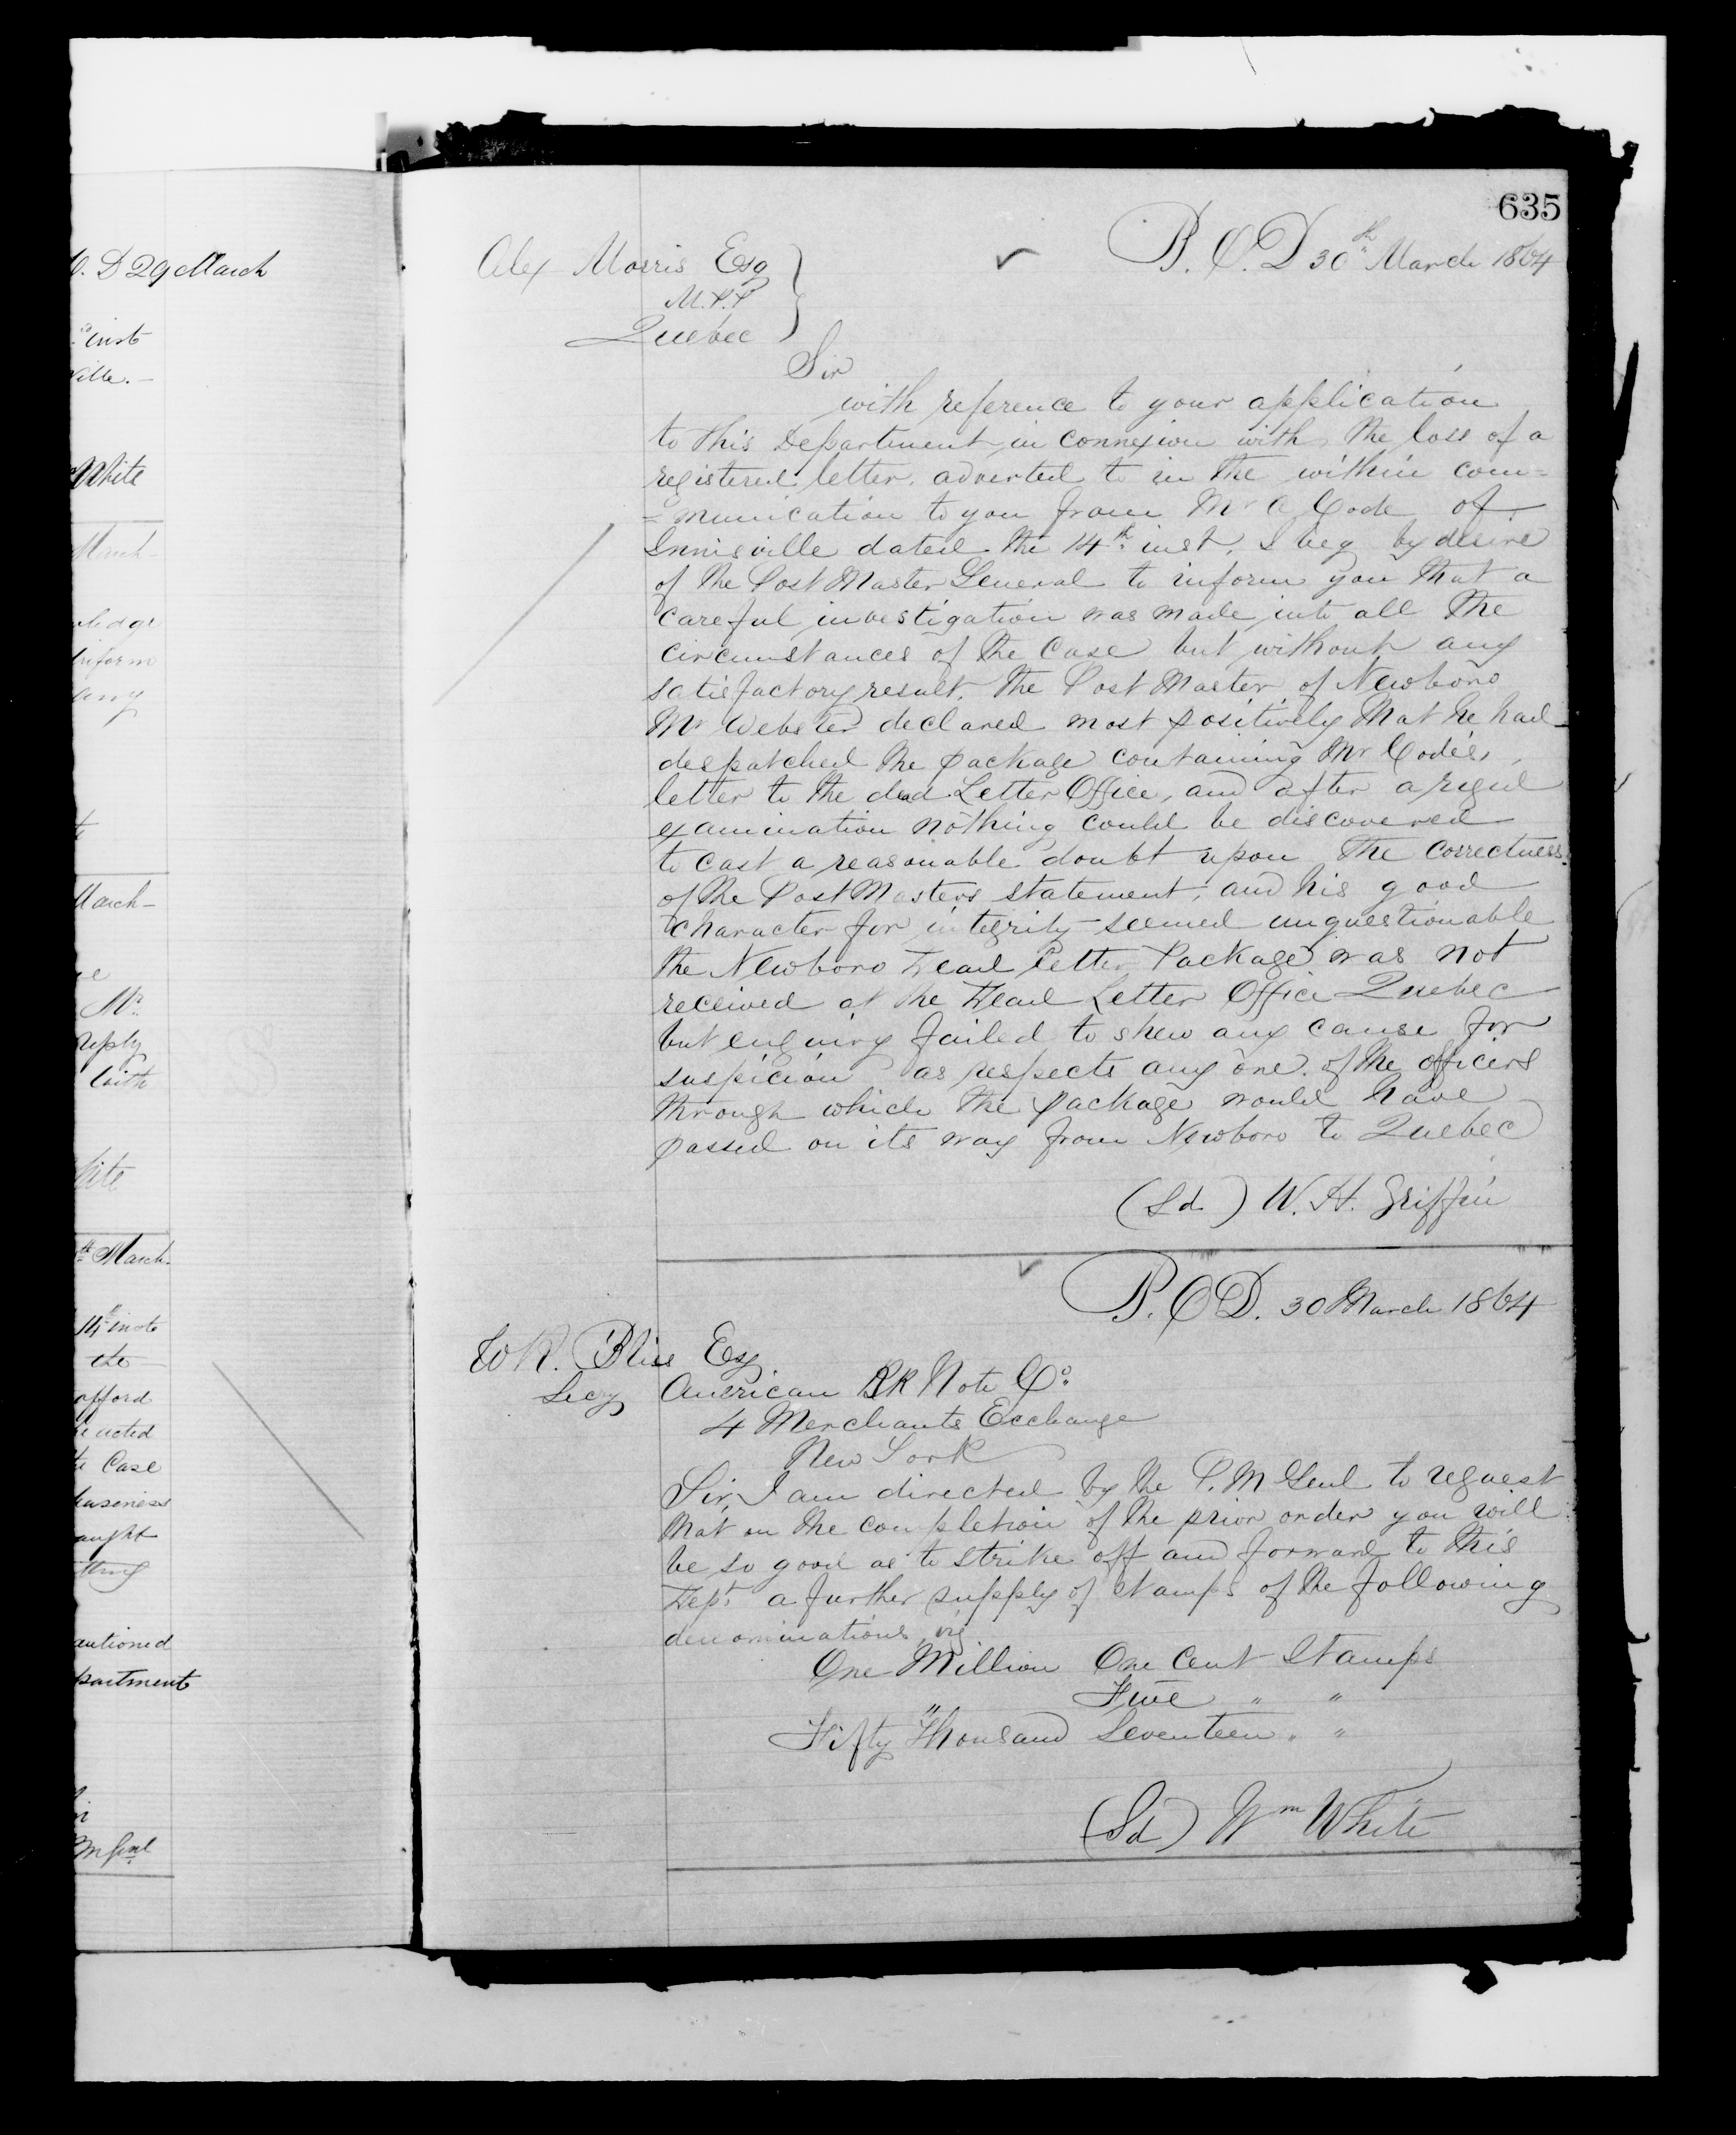 D 29 March
inst
ville.-
White
March
any
March-
Mr.
reply
with
March.
14th inst
the
afford
acted
Case
business
aught
thing
autioned
partment
635
P.O.D 30th March 1864
Alex Morris Esq
M.P.P
Quebec
Sir
with reference to your application
to this Department in connexion with the loss of a
registered letter, adverted to in the within com=
=munication to you from Mr A Code of
Innisville dated the 14th inst, I beg by desire
of the Post Master General to inform you that a
careful investigation was made into all the
circumstances of the Case but without any
satisfactory result. The Post Master of Newboro
Mr Webster declared most positively that he had
despatched the package containing Mr Code's,
letter to the dead Letter Office, and after a rigid
examination nothing could be discovered
to cast a reasonable doubt upon the correctness
of the Post Masters statement, and his good
character for integrity seemed unquestionable
the Newboro Dead Letter Package was not
received at the Dead Letter Office Quebec
but enquiry failed to shew any cause for
suspicion as respects any one of the officers
through which the package would have
passed on its way from Newboro to Quebec
(Sd) W. H. Griffin
P.O.D. 30 March 1864
W R. Bliss Esq
Secy American BK Note Co.
4 Merchants Exchange
New York
Sir, I am directed by the P.M Genl to request
that on the completion of the prior order you will
be so good as to strike off and forward to this
Dept a further supply of Stamps of the following
denominations, viz
One Million One Cent Stamps
" Five " "
Fifty Thousand Seventeen " "
(Sd) Wm White